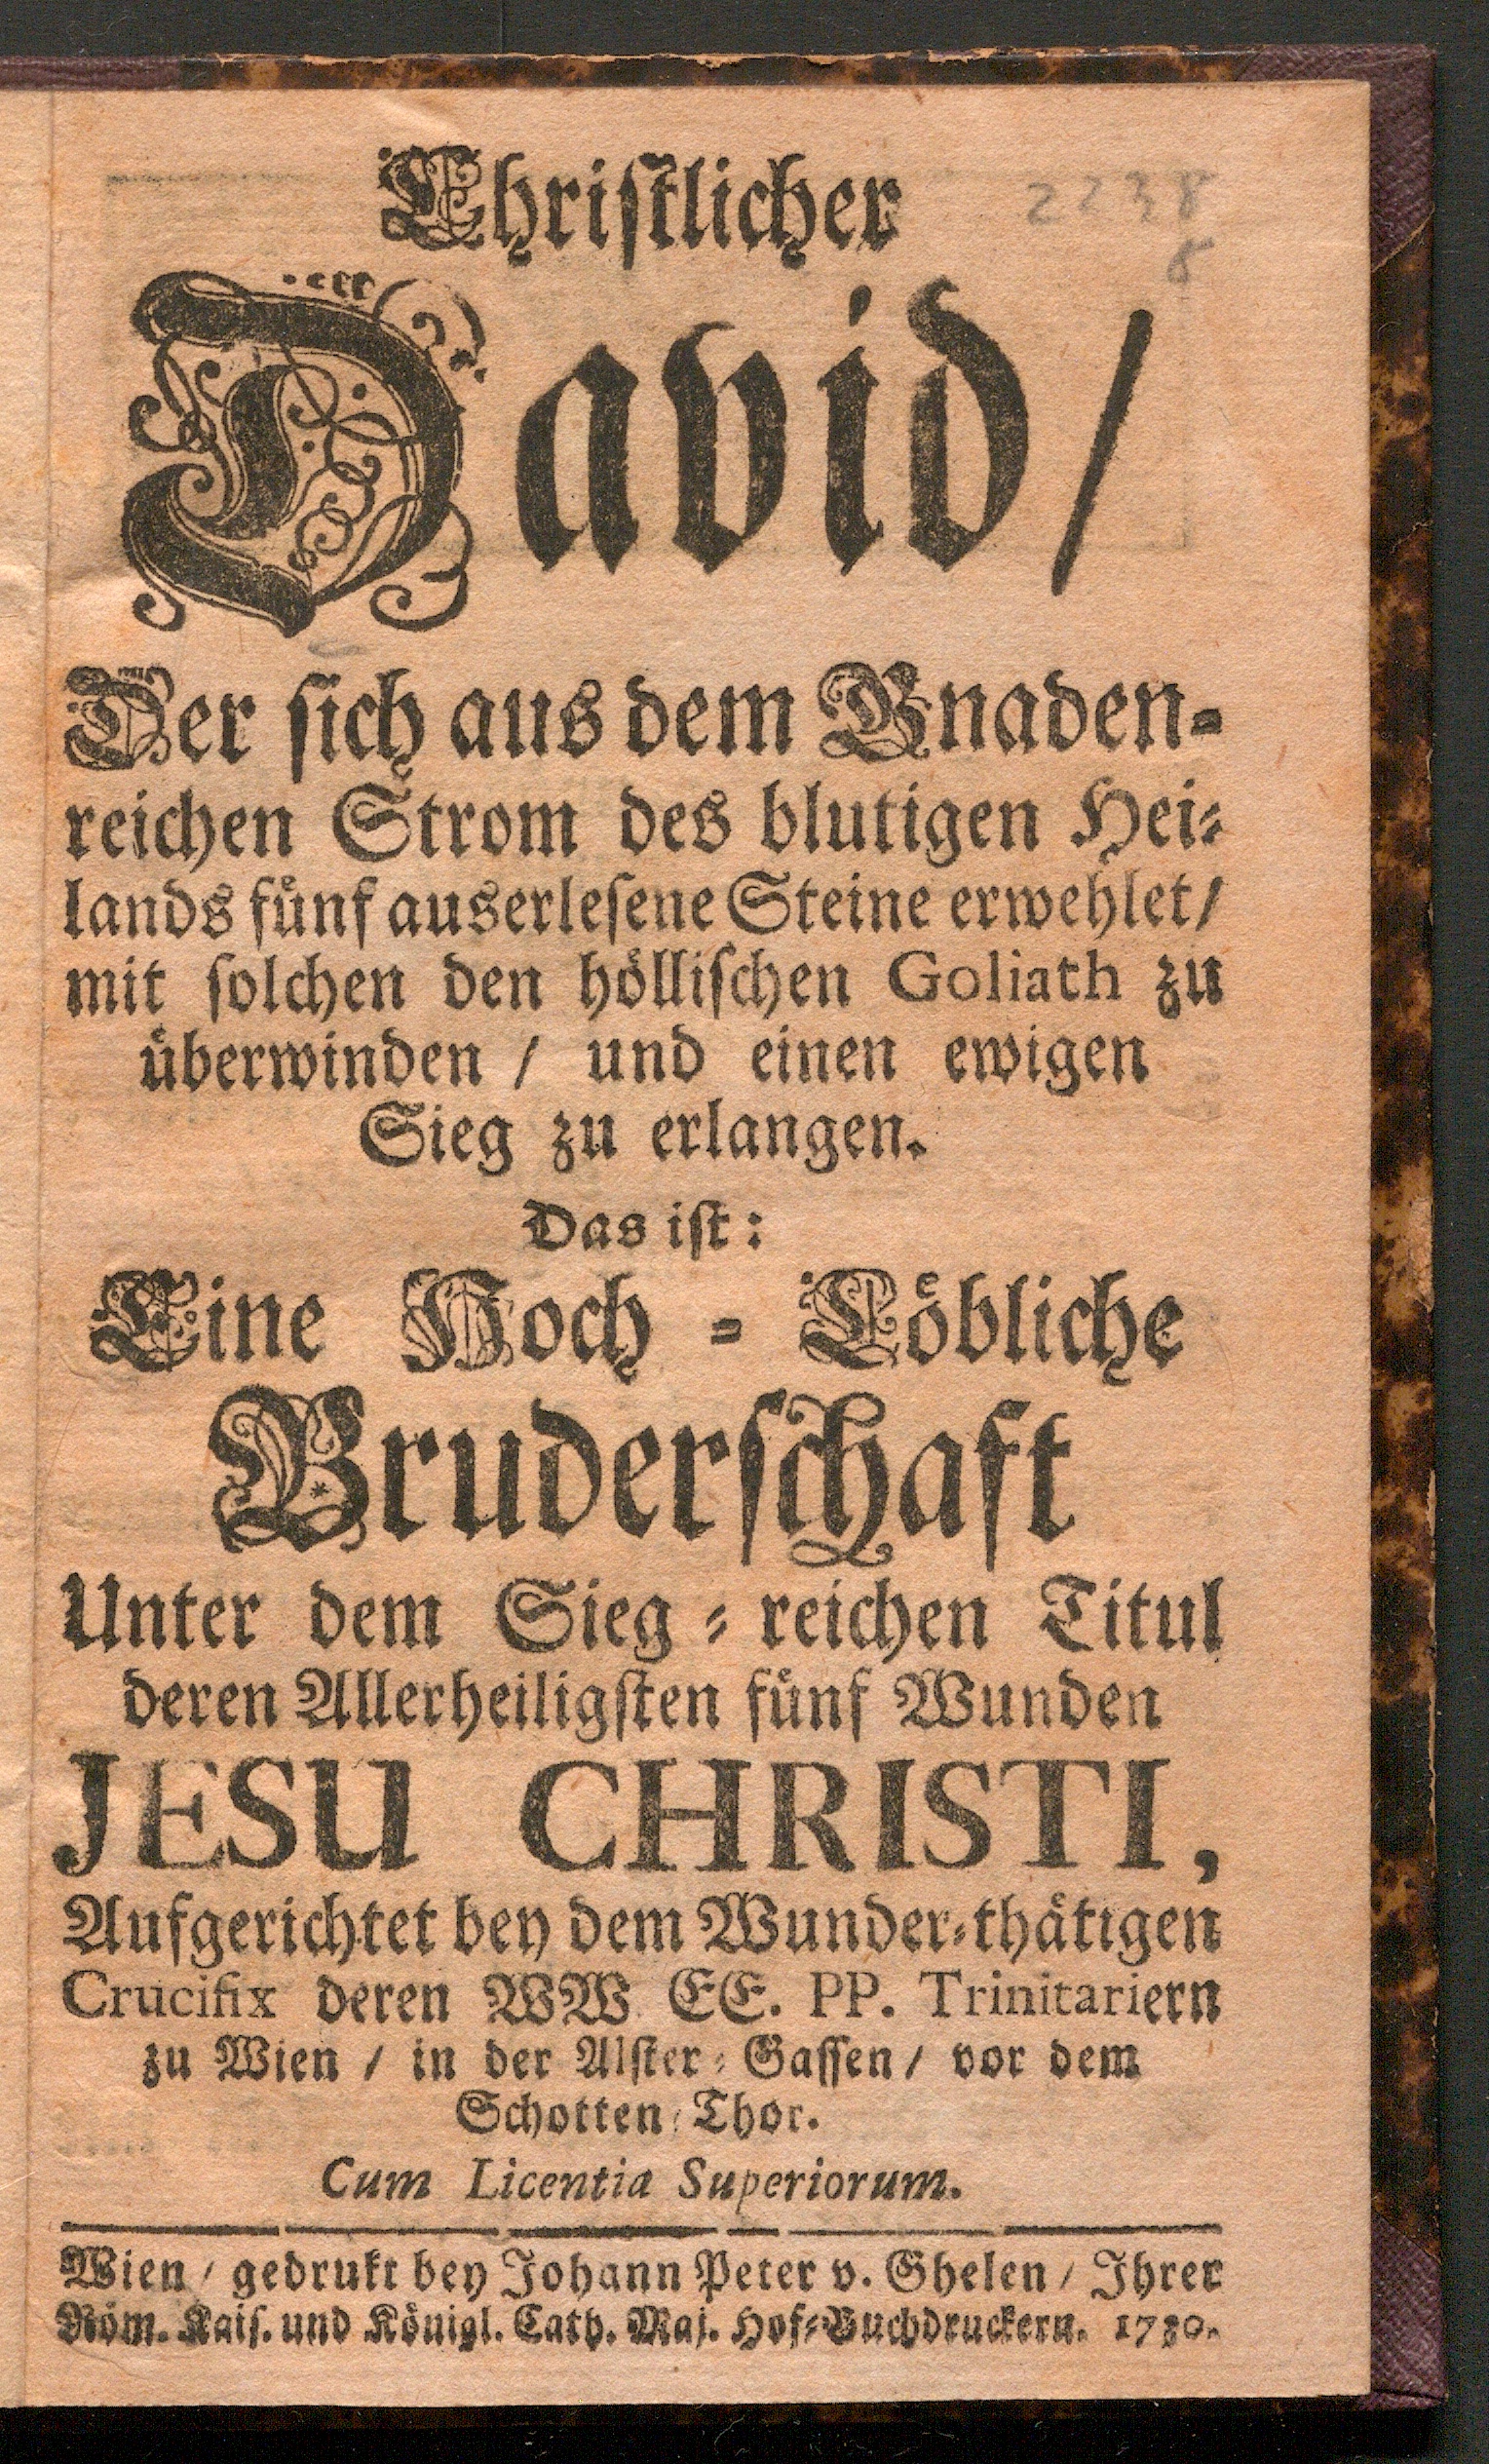 2238
8
Christlicher
David/
Der sich aus dem Gnaden-
reichen Strom des blutigen Hei-
lands fünf auserlesene Steine erwehlet/
mit solchen den höllischen Goliath zu
überwinden / und einen ewigen
Sieg zu erlangen.
Das ist:
Eine Hoch - Löbliche
Bruderschaft
Unter dem Sieg - reichen Titul
deren Allerheiligsten fünf Wunden
JESU CHRISTI,
Aufgerichtet bey dem Wunder-thätigen
Crucifix deren WW EE. PP. Trinitariern
zu Wien / in der Alster-Gassen / vor dem
Schotten-Thor.
Cum Licentia Superiorum.
Wien / gedrukt bey Johann Peter v. Ghelen / Ihrer
Röm. Kais. und Königl. Cath. Maj. Hof-Buchdruckern. 1730.